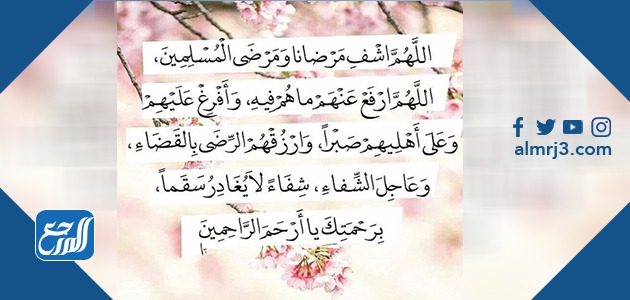 اللَّهُمَّ اشْفِ مَرْضانا وَمَرْضَى الْمُسْلِمِينَ،
اللَّهُمَّ ارْفَعْ عَنْهُمْ ما هُمْ فِيهِ، وَأَفْرِغْ عَلَيْهِمْ
وَعَلَى أَهْلِيهِمْ صَبْراً، وَارْزُقْهُمْ الرِّضَى بِالقَضَاءِ،
وَعَاجِلَ الشِّفاءِ، شِفَاءً لاَ يُغَادِرُ سَقَماً،
بِرَحْمَتِكَ يا أَرْحَمَ الرَّاحِمِينَ
almrj3.com
المرجع